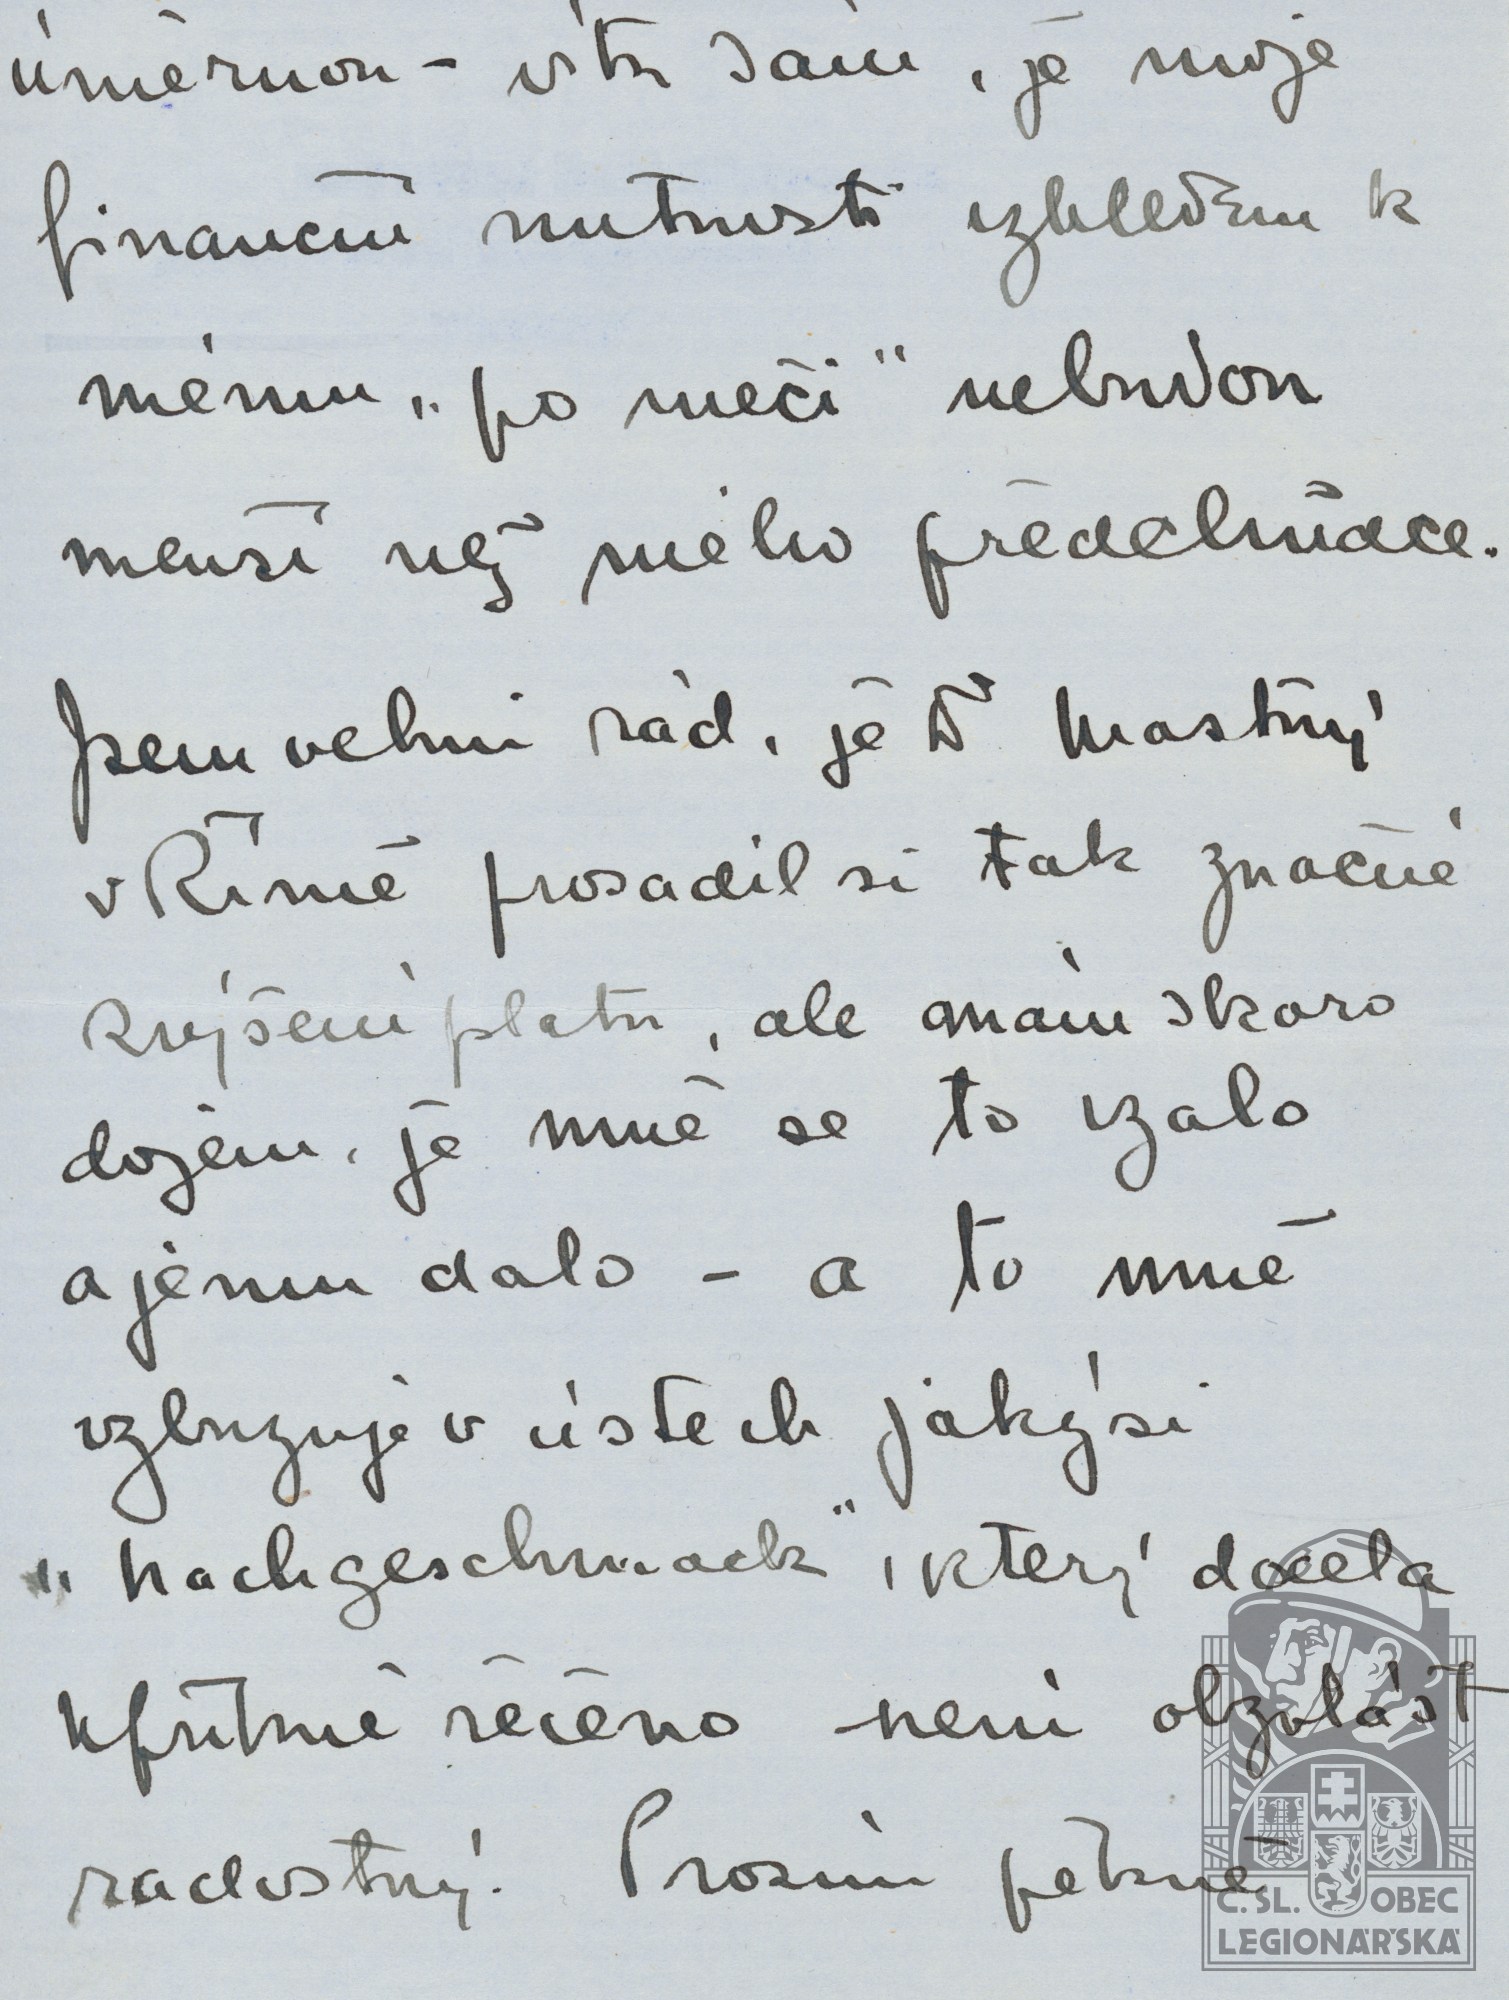 úměrnou – víte sám, že moje
finanční nutnosti vzhledem k
mému „po meči“ nebudou
menší než mého předchůdce.
Jsem velmi rád, že Dr Mastný
v Římě prosadil si tak značné
zvýšení platu, ale mám skoro
dojem, že mně se to vzalo
a jemu dalo – a to mně
vzbuzuje v ústech jakýsi
„Nachgeschmack“, který docela
upřímně řečeno není obzvlášť
radostný. Prosím pěkně
Č. SL. OBEC
LEGIONÁŘSKÁ